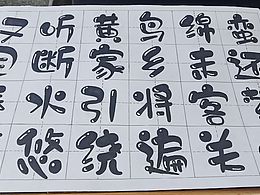 又听黄鸟绵蛮
断家乡未还
水引将客
悠绕遍关